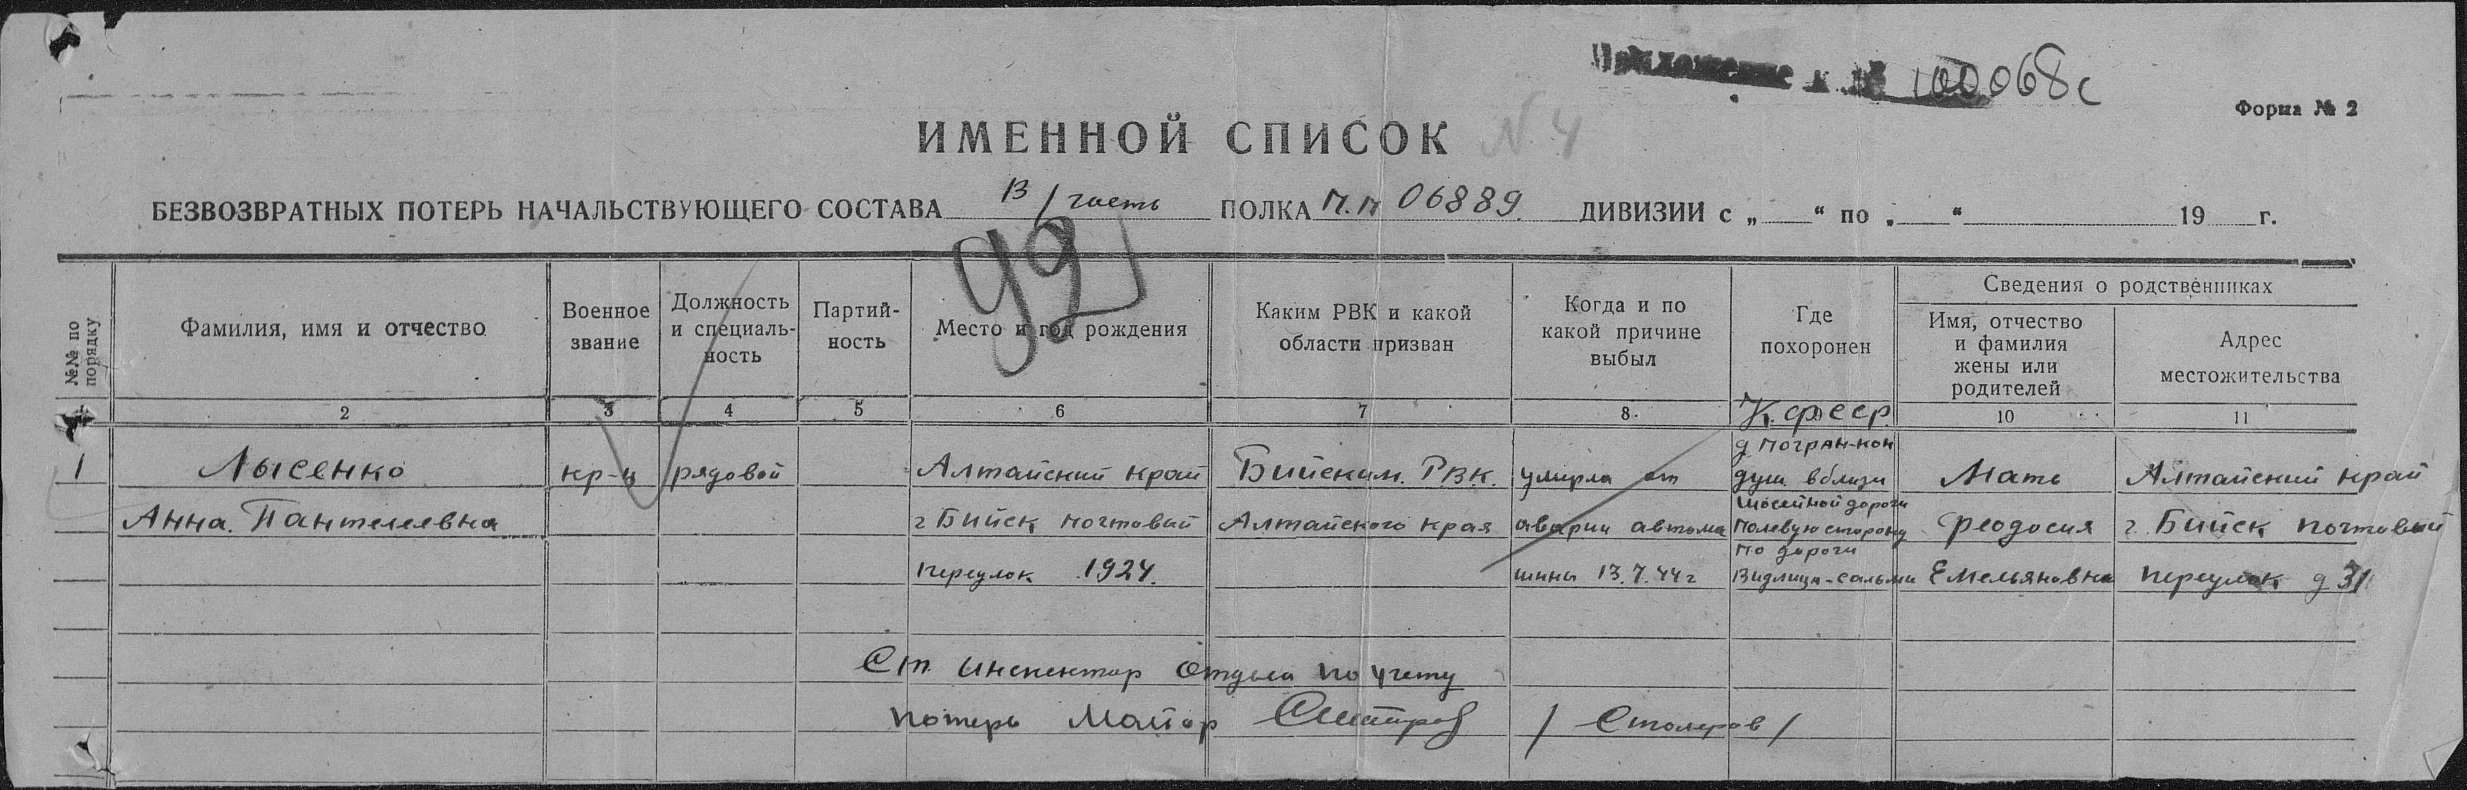 Приложение к № 100068с
Форма № 2
ИМЕННОЙ СПИСОК N 4
БЕЗВОЗВРАТНЫХ ПОТЕРЬ НАЧАЛЬСТВУЮЩЕГО СОСТАВА В/часть ПОЛКА п.п 06889 ДИВИЗИИ с „ “ по „ “ 19 г.
92
№№ по порядку
Фамилия, имя и отчество
Военное
звание
Должность
и специаль-
ность
Партий-
ность
Место и год рождения
Каким РВК и какой
области призван
Когда и по
какой причине
выбыл
Где
похоронен
Сведения о родственниках
Имя, отчество
и фамилия
жены или
родителей
Адрес
местожительства
2 3 4 5 6 7 8 10 11
К.ф ССР
1
Лысенко
Анна Пантелеевна
кр-ц
рядовой
Алтайский край
г Бийск почтовый
переулок 1924.
Бийским РВК.
Алтайского края
умерла от
аварии автома
шины 13.7.44г
д погран-кон
душ вблизи
шоссейной дороги
полевую сторону
по дороги
Видлица-Сальми
Мать
Феодосия
Емельяновна
Алтайский край
г. Бийск почтовый
переулок д 31
Ст инспектор отдела по учету
потерь Майор / Столяров /